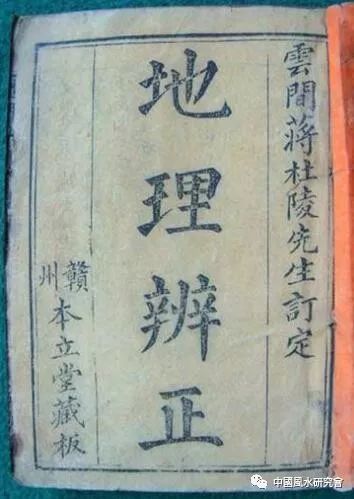 雲間蔣杜陵先生訂定
地理辨正
贛州本立堂藏板
中國風水研究會